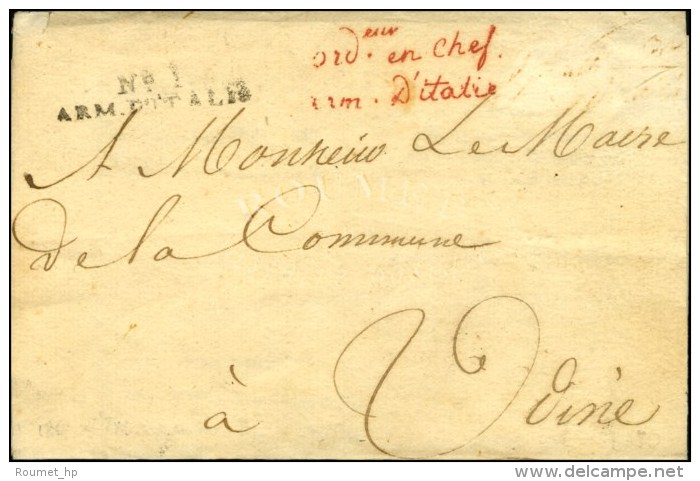 Nº 1
ARM. D'ITALIE
ord.eur en chef.
arm. D'italie
A Monsieur Le Maire
De la Commune
à Udine
ROUMET
Roumet_hp
www.delcampe.net